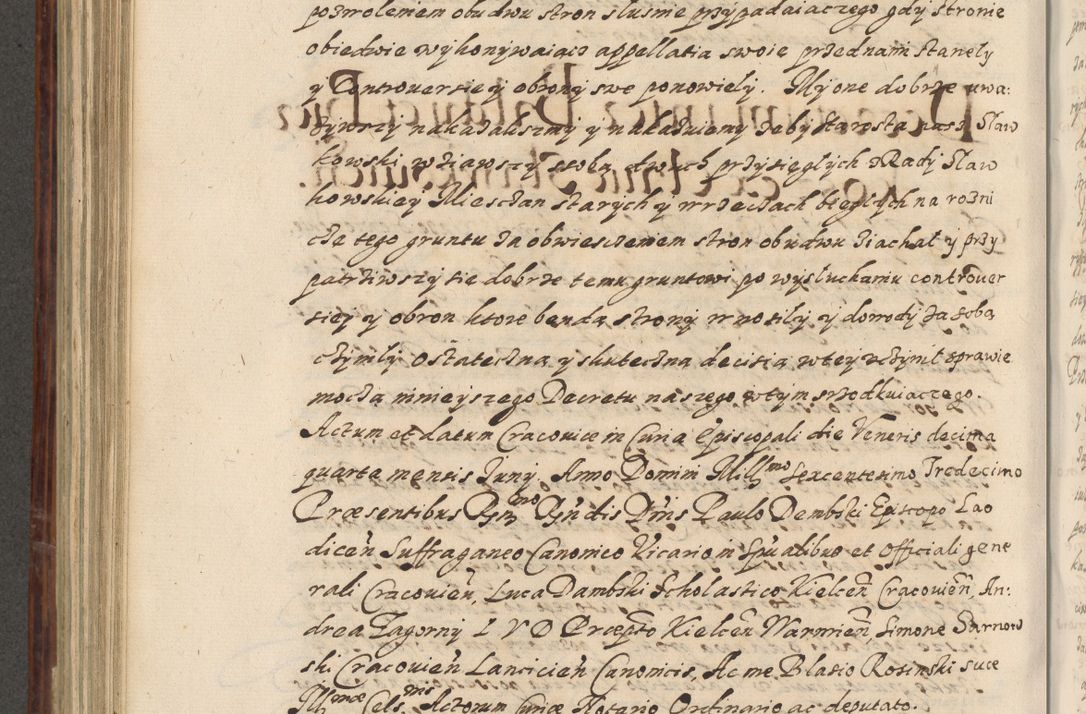 pozwoleniem obudwu stron slusnie przypadaiaczego gdy stronie
obiedwie wykonywaiacz appellatia swoie przednami stanely
y Controuersiey obrony swe ponowiely. My one dobrze uwa:
zywszy nakazalismy y nakazuiemy zeby starosta nasz Slaw
kowski wziawszy zsoba dwuch przysieglych z Rady Slaw
kowskiey Miesczan starych y wrzeczach bieglych na rozni
cze tego gruntu za obwiesczeniem stron obudwu ziachal y przy
patrziwszy sie dobrze temu gruntowi po wysluchaniu controuer
siey y obron ktore benda strony wnosily y dowody za soba
czynily ostateczna y skuteczna decisia wtey uczynil sprawie
mocza ninieyszego Decretu naszego wtym srzodkuiaczego.
Actum et datum Cracouiæ in Curia Episcopali die Veneris decima
quarta mensis Juny Anno Domini Mill^mo sexcentesimo Tredecimo
Præsentibus R^mo Rndis Dnis Paulo Dembski Episcopo Lao
dicen Suffraganeo Canonico Vicario in Spualibus et Officiali gene
rali Cracouien, Luca Dambski Scholastico Kielcen Cracouien, An:
drea Zagorny I V D Præpto Kielcen Warmien Simone Starnow
ski Cracouien Lancicien Canonicis, Ac me Blasio Rosinski suæ
Ill^mæ Cels^nis Actorum Curiæ Notario Ordinario ac deputato.